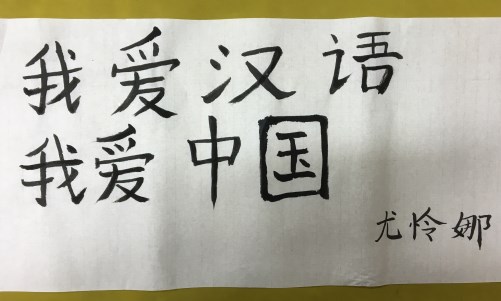 我爱汉语
我爱中国
尤怜娜